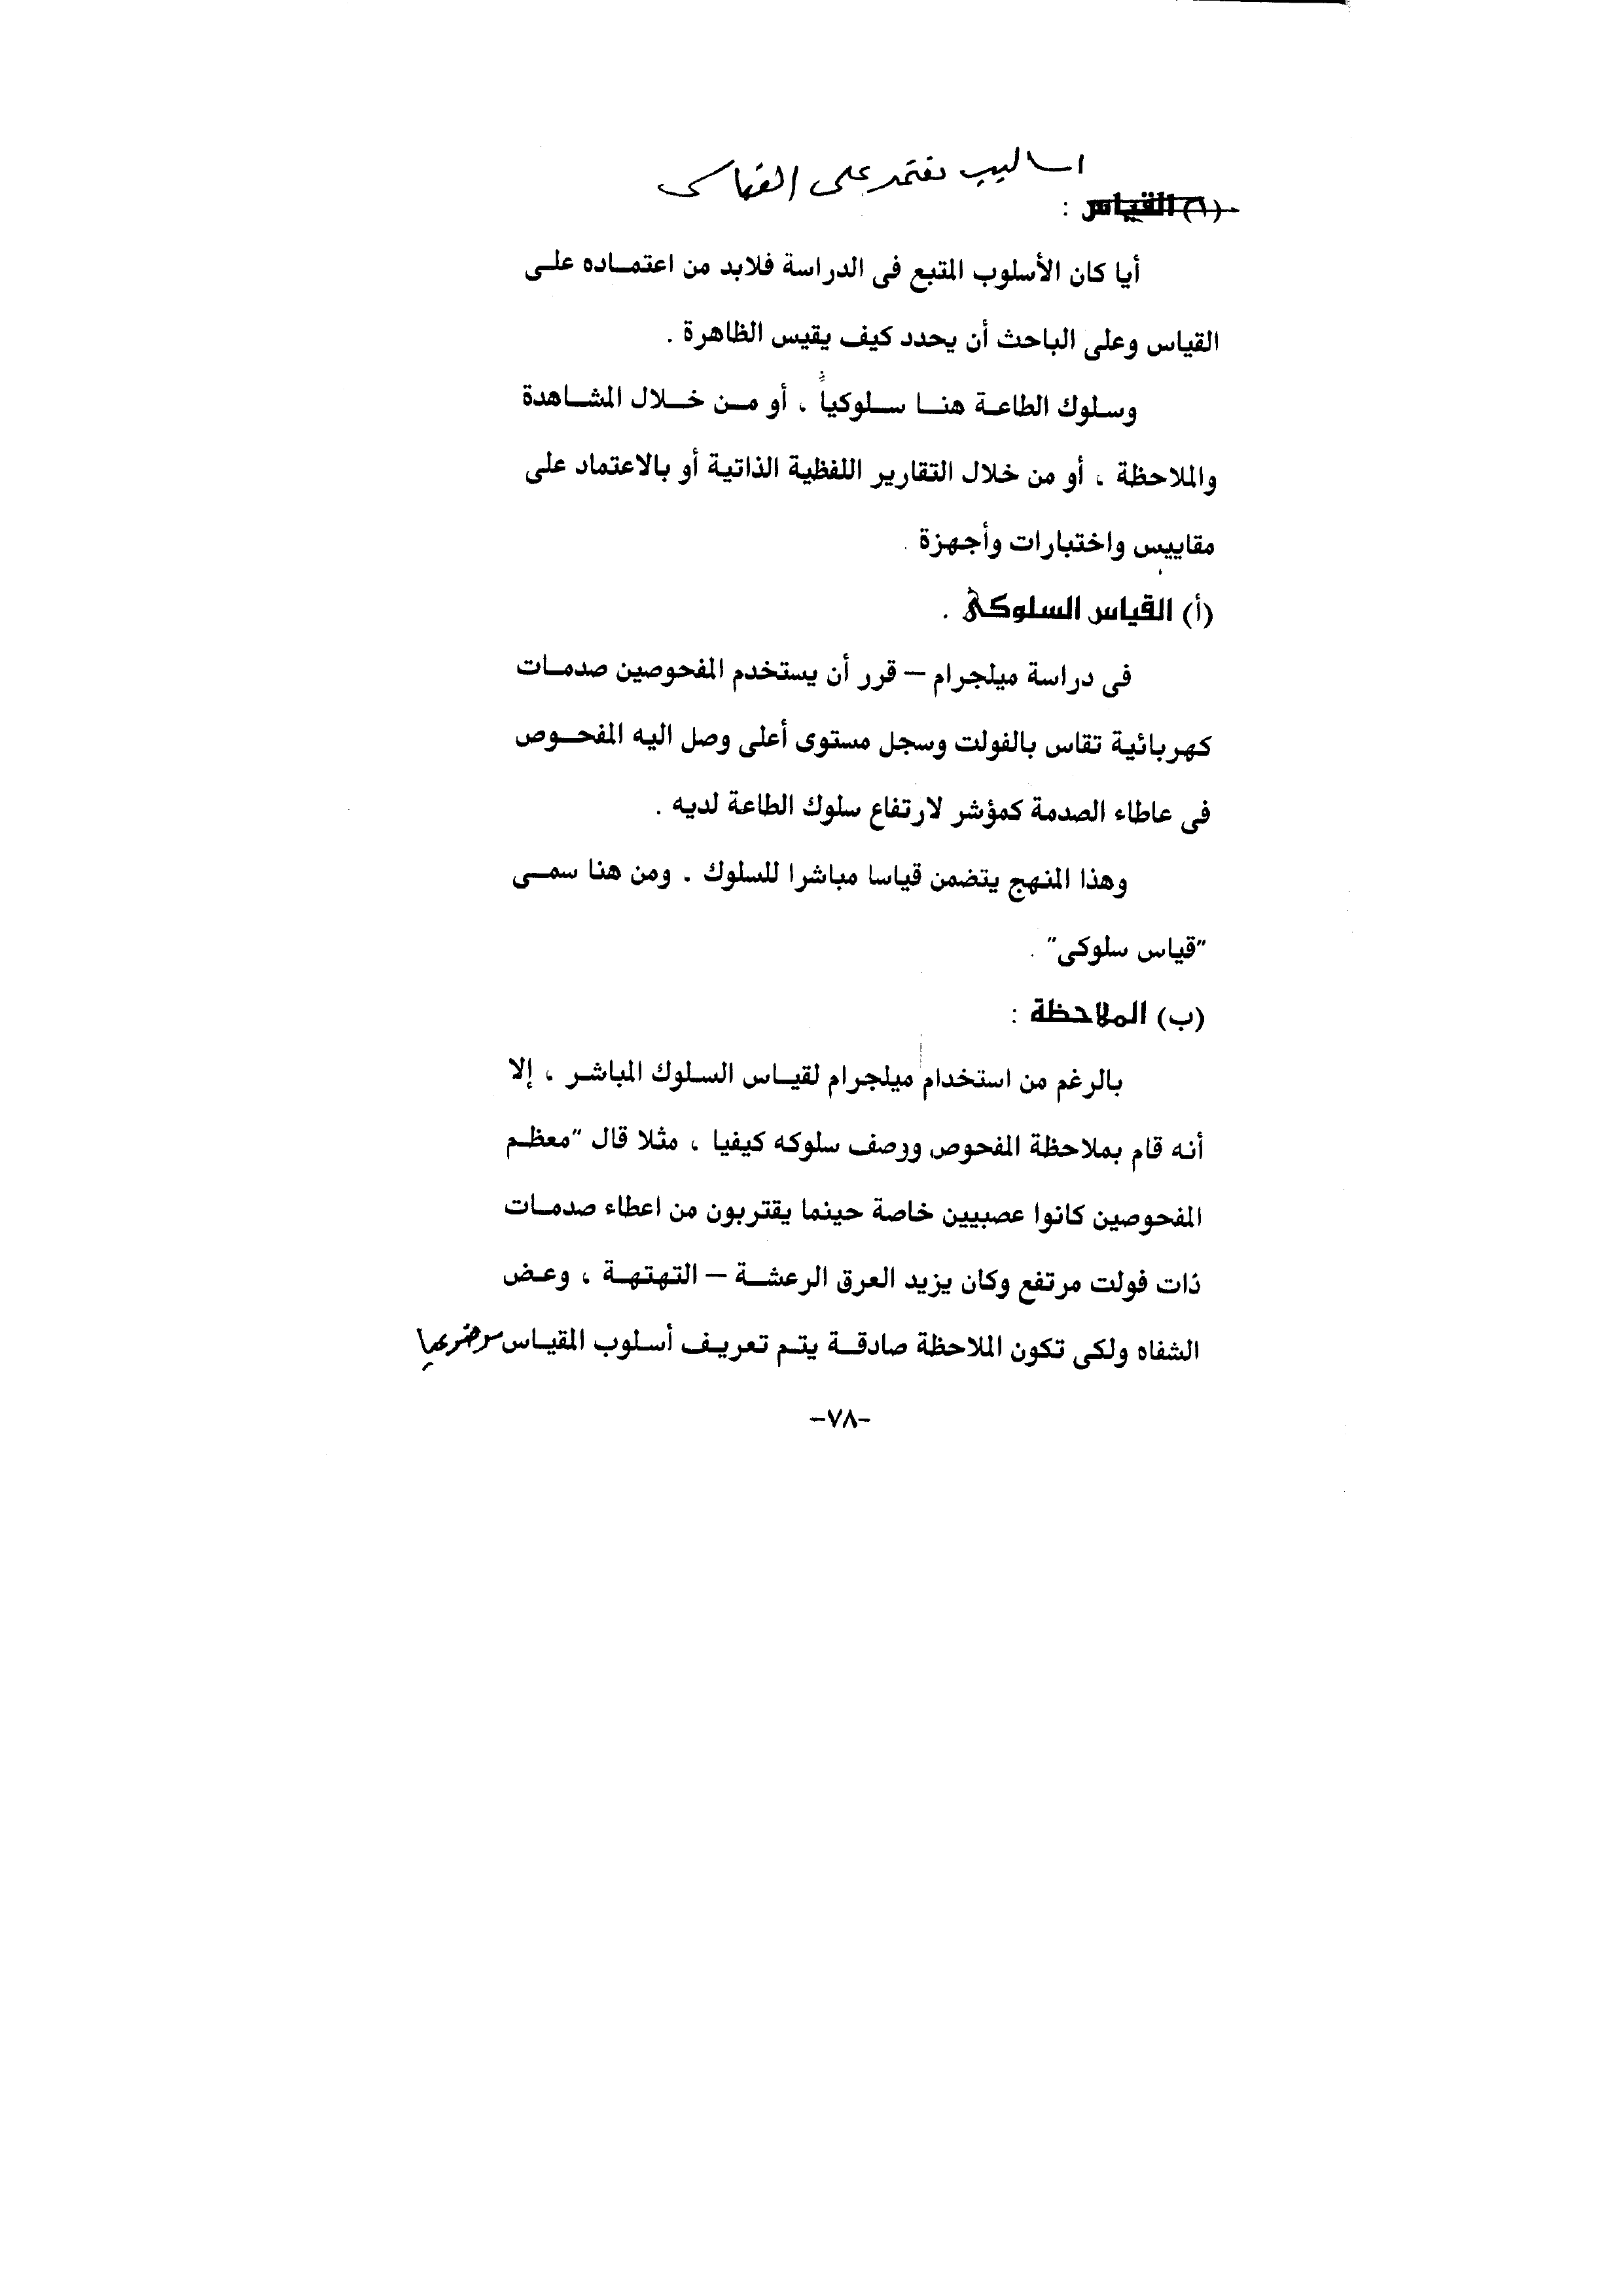 اساليب تعتمد على القياس
(٦) القياس :
أيا كان الأسلوب المتبع فى الدراسة فلابد من اعتمــاده علــى
القياس وعلى الباحث أن يحدد كيف يقيس الظاهرة .
وسلوك الطاعـة هنـا سـلوكياً ، أو مـن خـلال المشـاهدة
والملاحظة ، أو من خلال التقارير اللفظية الذاتية أو بالاعتماد على
مقاييس واختبارات وأجهزة .
(أ) القياس السلوكى .
فى دراسة ميلجرام – قرر أن يستخدم المفحوصين صدمـات
كهربائية تقاس بالفولت وسجل مستوى أعلى وصل اليه المفحـوص
فى عاطاء الصدمة كمؤشر لارتفاع سلوك الطاعة لديه .
وهذا المنهج يتضمن قياسا مباشرا للسلوك . ومن هنا سمـى
"قياس سلوكى" .
(ب) الملاحظة :
بالرغم من استخدام ميلجرام لقيـاس السـلوك المباشـر ، إلا
أنه قام بملاحظة المفحوص وورصف سلوكه كيفيا ، مثلا قال "معظـم
المفحوصين كانوا عصبيين خاصة حينما يقتربون من اعطاء صدمـات
ذات فولت مرتفع وكان يزيد العرق الرعشـة – التهتهـة ، وعـض
الشفاه ولكى تكون الملاحظة صادقـة يتـم تعريـف أسـلوب المقيـاس موضوعيا
-٧٨-